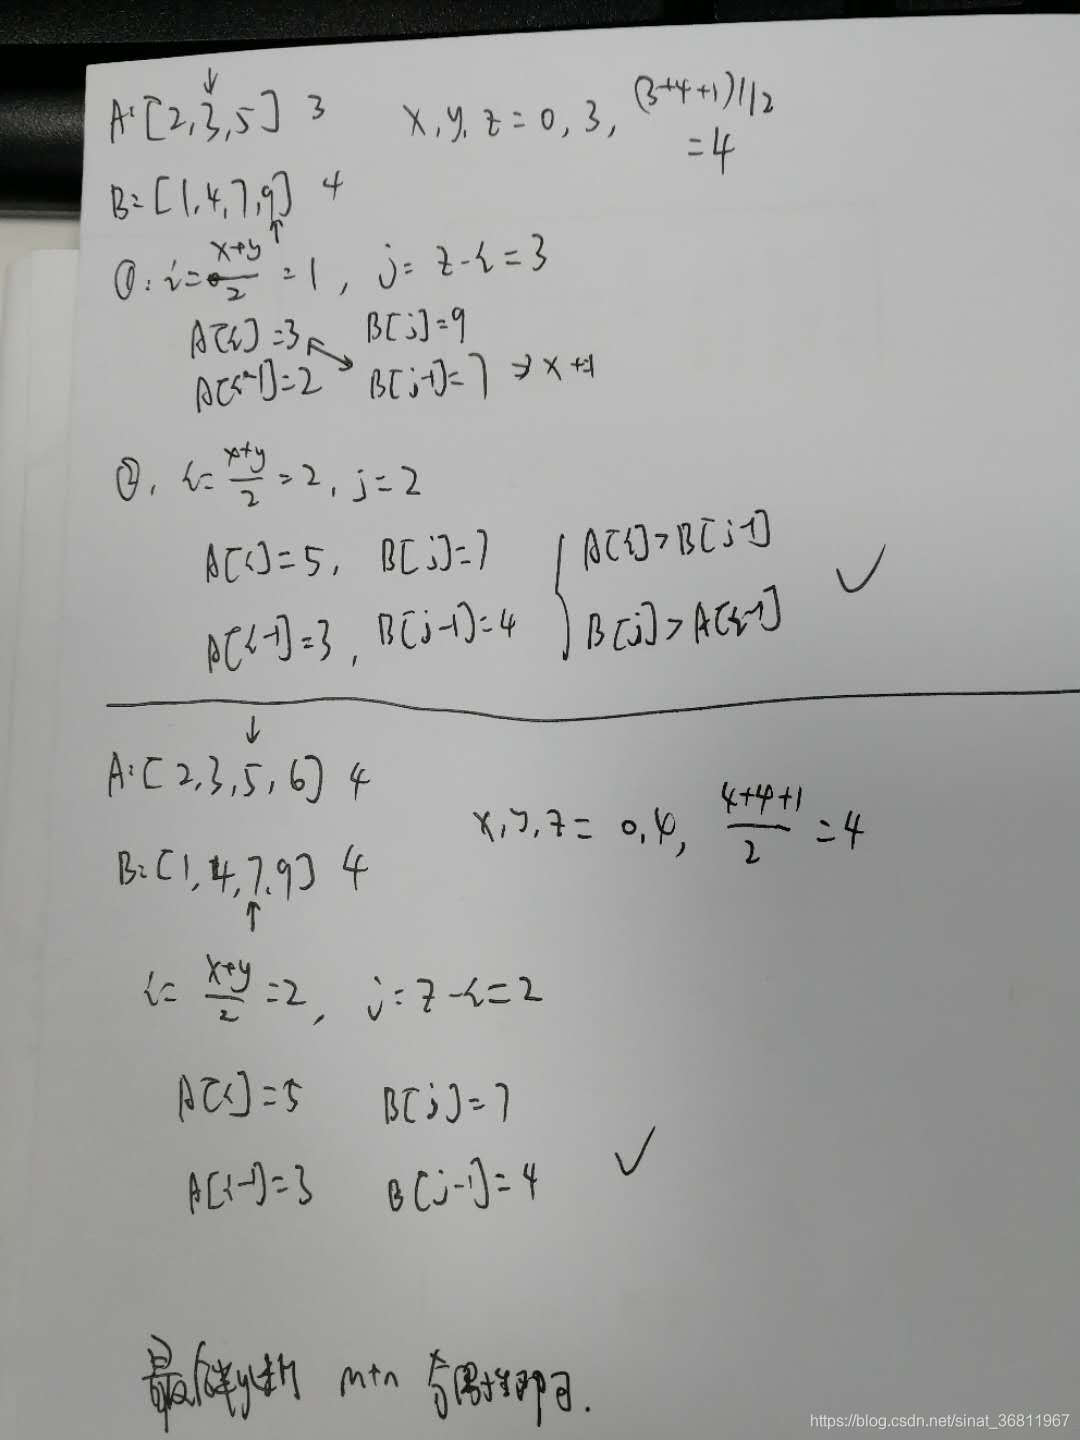 A:[2,3,5] 3 x,y,z=0,3,(3+4+1)//2
=4
B=[1,4,7,9] 4
①: i=x+y/2=1, j=z-i=3
A[i]=3 B[j]=9
A[i-1]=2 B[j-1]=7 ⇒ x+=1
②, i=x+y/2=2, j=2
A[i]=5, B[j]=7 A[i]>B[j-1]
A[i-1]=3, B[j-1]=4 B[j]>A[i-1]
A:[2,3,5,6] 4
x,y,z=0,4,4+4+1/2=4
B=[1,4,7,9] 4
i=x+y/2=2, j=z-i=2
A[i]=5 B[j]=7
A[i-1]=3 B[j-1]=4
最后 m+n 奇偶 即可.
https://blog.csdn.net/sinat_36811967